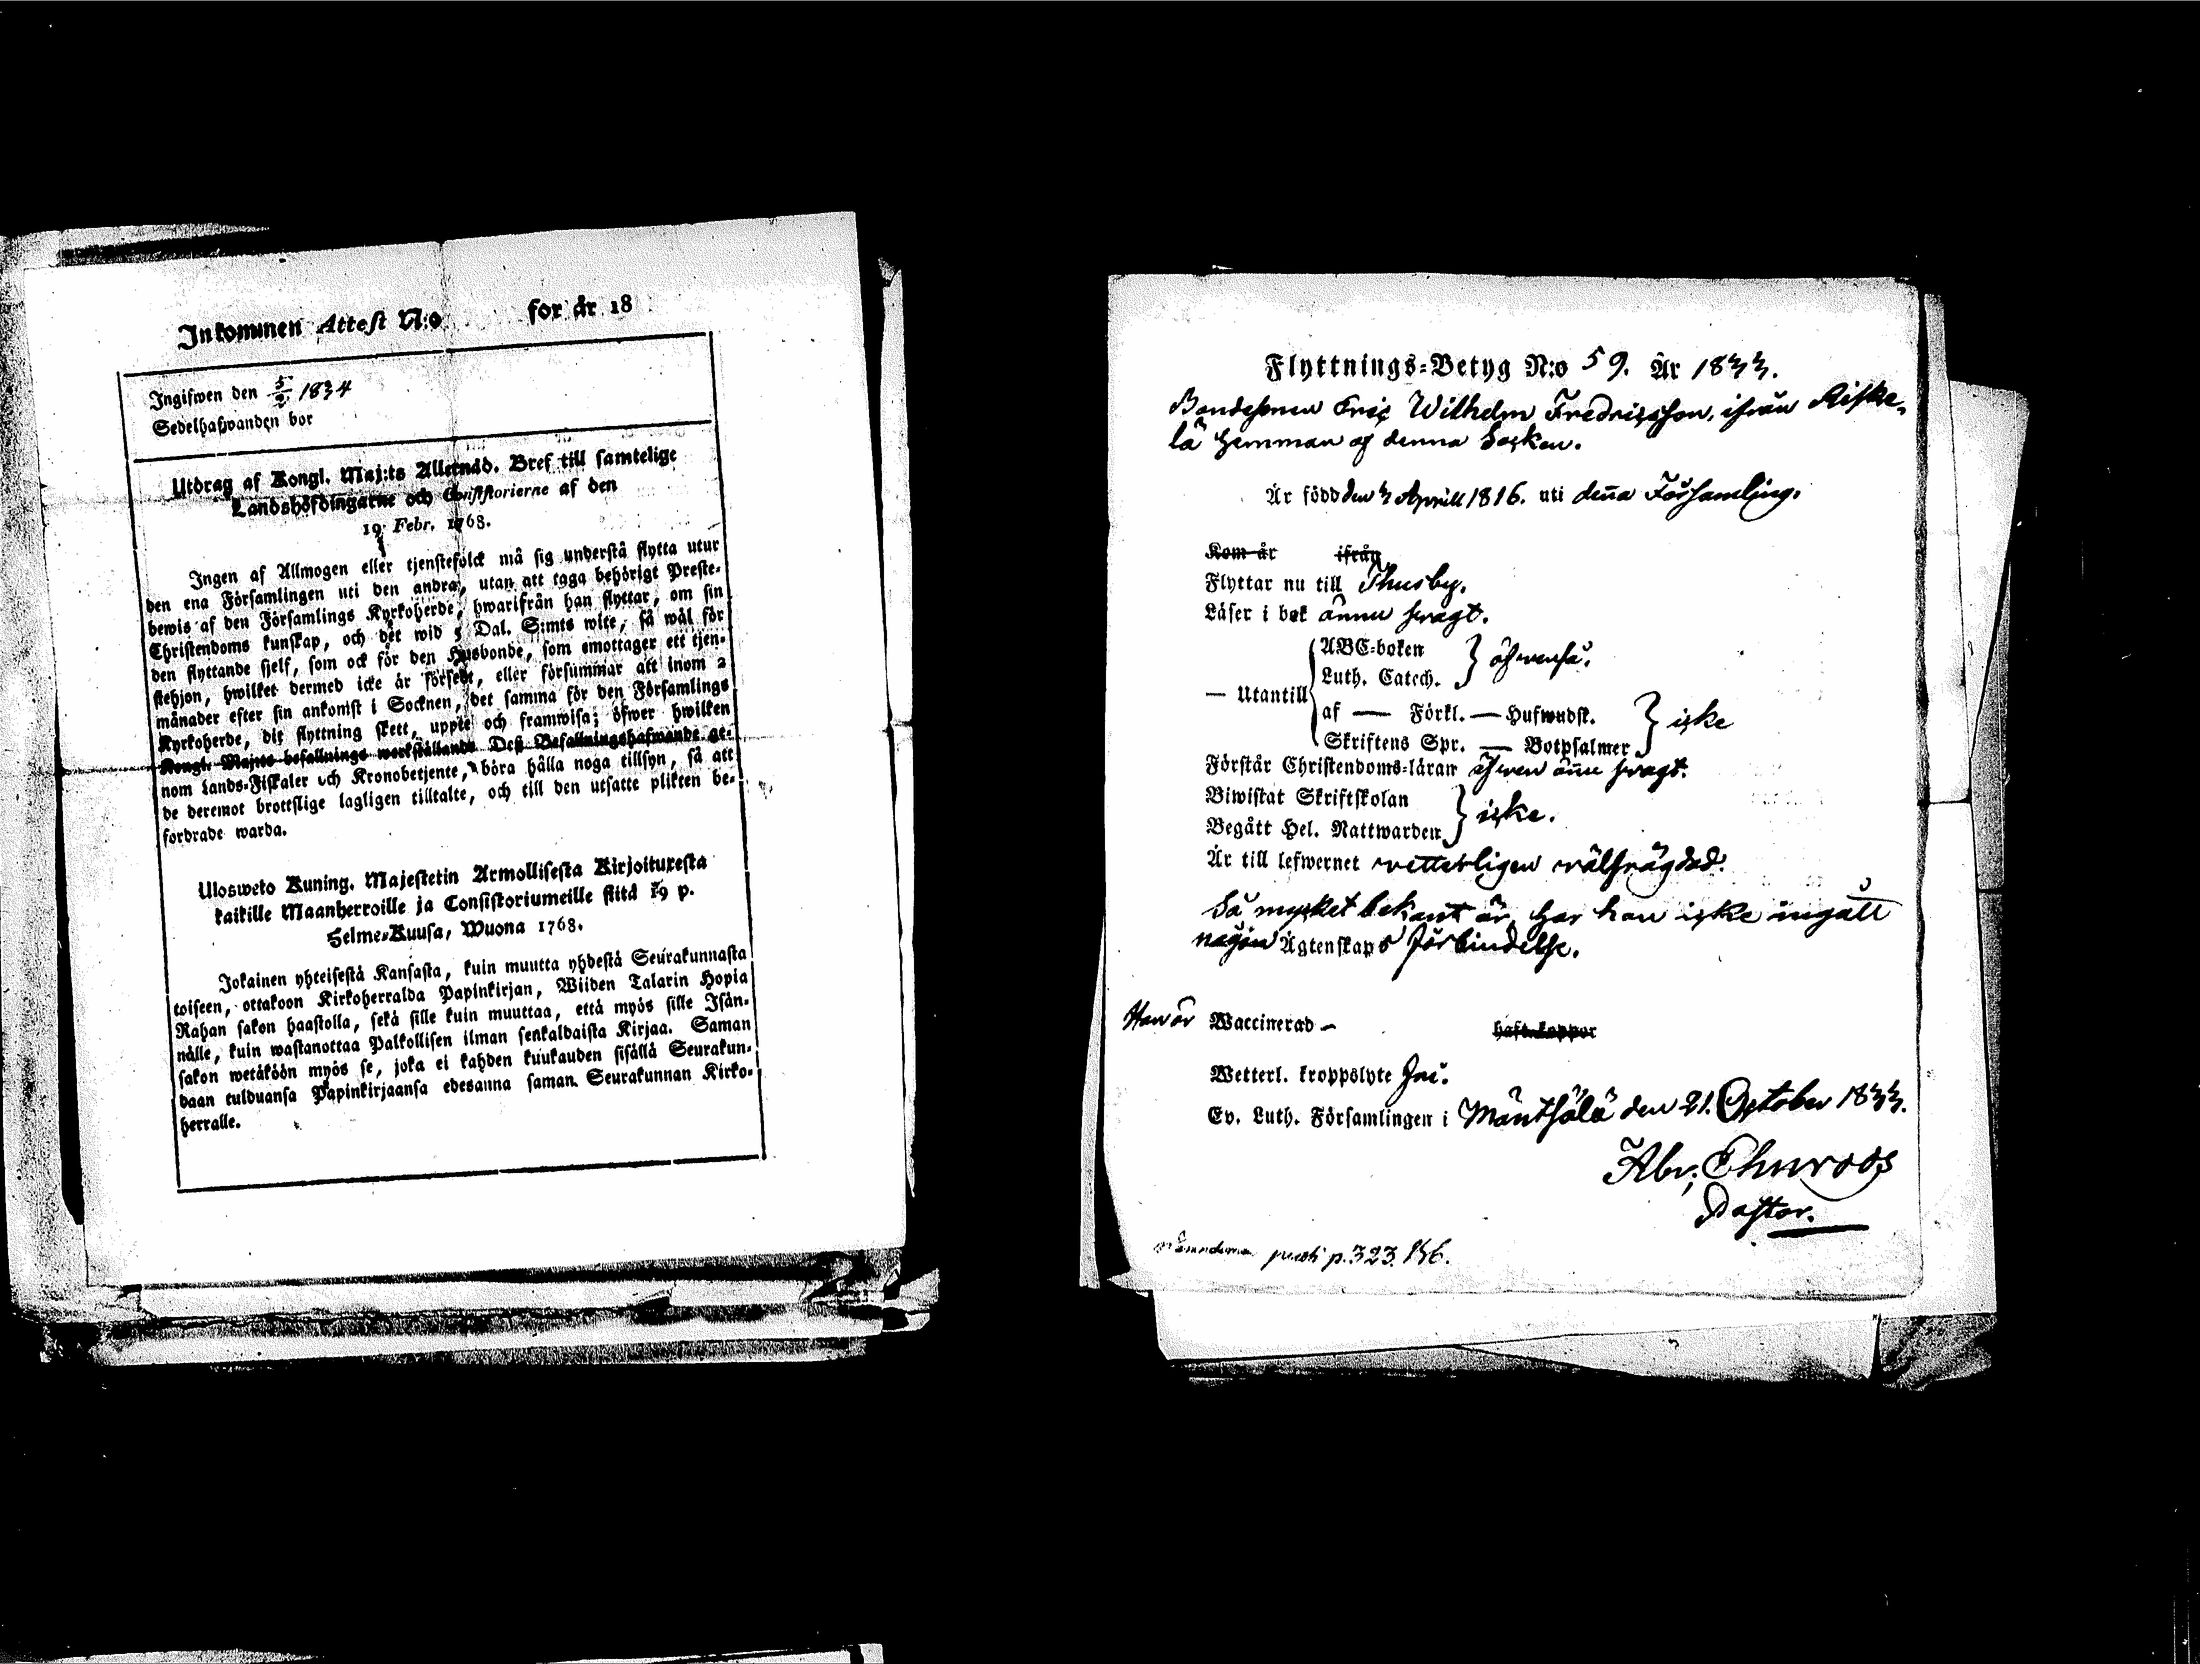 Inkommen Attest N:o for år 18
Ingifwen den 5/2 1834
Sedelhafwanden bor
Utdrag af Kongl. Maj:ts Allernåd. Bref till samtelige
Landshöfdingarne och Consistorierne af den
19 Febr. 1768.
Ingen af Allmogen eller tjenstefolck må sig understå flytta utur
den ena Församlingen uti den andra, utan att taga behörigt Preste-
bewis af den Församlings Kyrkoherde, hwarifrån han flyttar, om sin
Christendoms kunskap, och det wid 5 Dal. S:mts wite, så wäl för
den flyttande sjelf, som ock för den Husbonde, som emottager ett tjen-
stehjon, hwilket dermed icke är försedt, eller försummar att inom 2
månader efter sin ankomst i Socknen, det samma för den Församlings
Kyrkoherde, dit flyttning skett, uppte och framwisa; öfwer hwilken
Kongl. Maj:ts befallnings werkställande Dess Befallningshafwande ge-
nom Lands-Fiskaler och Kronobetjente, böra hålla noga tillsyn, så att
de deremot brottslige lagligen tilltalte, och till den utsatte plikten be-
fordrade warda.
Ulosweto Kuning. Majestetin Armollisesta Kirjoituxesta
kaikille Maanherroille ja Consistoriumeille siitä 19 p.
Helme-Kuusa, Wuona 1768.
Jokainen yhteisestä Kansasta, kuin muutta yhdestä Seurakunnasta
toiseen, ottakoon Kirkoherralda Papinkirjan, Wiiden Talarin Hopia
Rahan sakon haastolla, sekä sille kuin muuttaa, että myös sille Isän-
nälle, kuin wastanottaa Palkollisen ilman senkaldaista Kirjaa. Saman
sakon wetäköön myös se, joka ei kahden kuukauden sisällä Seurakun-
daan tulduansa Papinkirjaansa edesanna saman Seurakunnan Kirko-
herralle.
Flyttnings-Betyg N:o 59. År 1833.
Bondesonen Eric Wilhelm Fredricsson, ifrån Riske-
lä hemman af denna Socken.
Är född den 3 Aprill 1816. uti denna Församling.
Kom år ifrån
Flyttar nu till Thusby.
Läser i bok ännu swagt.
ABC-boken
Luth. Catech. } äfwenså.
— Utantill
af — Förkl. — Hufwudst.
Skriftens Spr. — Botpsalmer } icke
Förstår Christendoms-läran äfwen ännu swagt.
Biwistat Skriftskolan
Begått Hel. Nattwarden } icke.
Är till lefwernet wetterligen wälfrägdad.
Så mycket bekant är, har han icke ingått
någon Ägtenskaps förbindelse.
Han är Waccinerad — haft koppor
Wetterl. kroppslyte Intet.
Ev. Luth. Församlingen i Mäntsälä den 21. October 1833.
Abr. Ehnroos
Pastor.
p. 323.